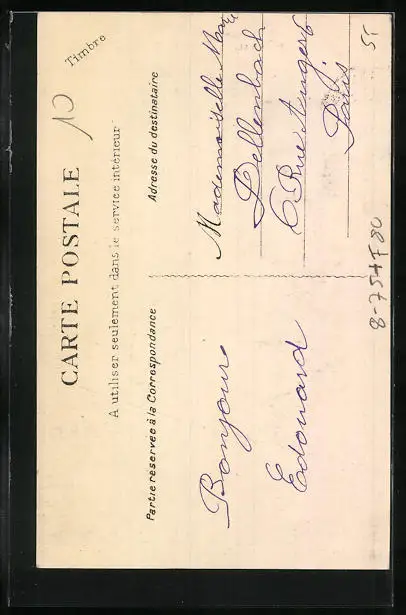 CARTE POSTALE
Timbre
10
A utiliser seulement dans le service intérieur
Partie réservée à la Correspondance
Adresse du destinataire
Bonjour
Edouard
Mademoiselle Marie
Dellenbach
6 Rue Augereau
Paris
5,-
8-754F80